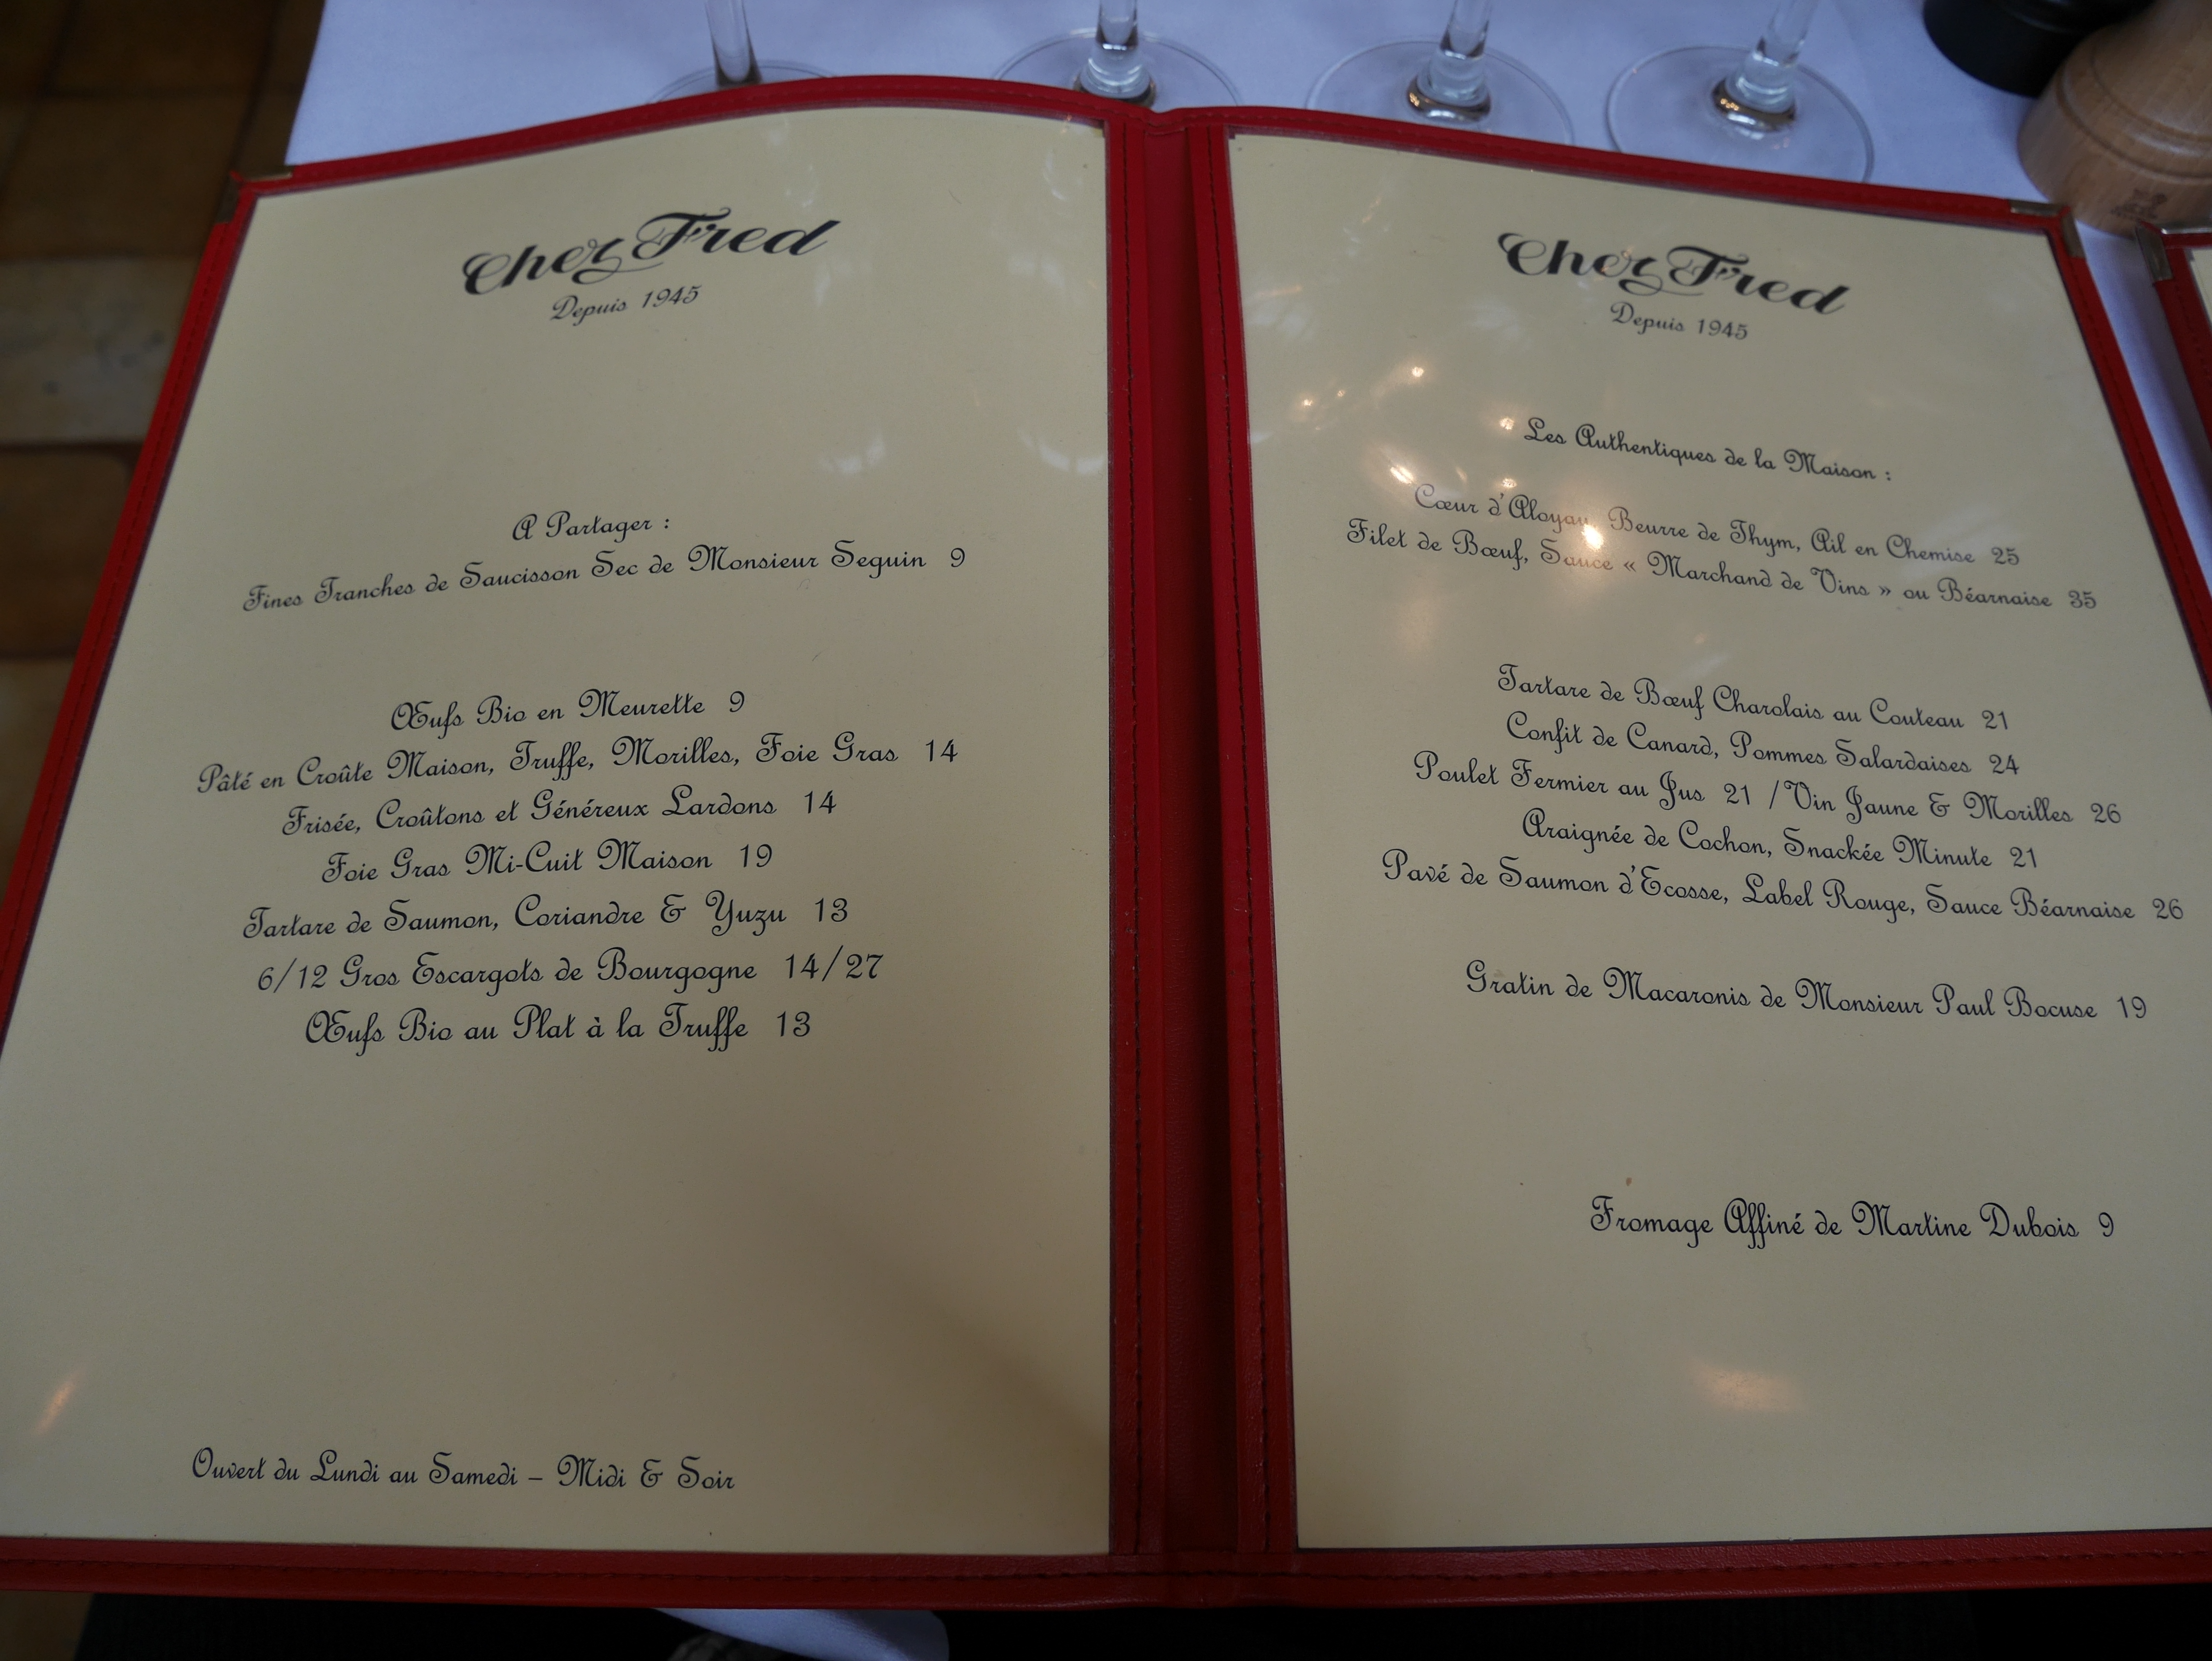 Chez Fred
Depuis 1945
A Partager :
Fines Tranches de Saucisson Sec de Monsieur Seguin 9
Œufs Bio en Meurette 9
Pâté en Croûte Maison, Truffe, Morilles, Foie Gras 14
Frisée, Croûtons et Généreux Lardons 14
Foie Gras Mi-Cuit Maison 19
Tartare de Saumon, Coriandre & Yuzu 13
6/12 Gros Escargots de Bourgogne 14/27
Œufs Bio au Plat à la Truffe 13
Ouvert du Lundi au Samedi – Midi & Soir
Chez Fred
Depuis 1945
Les Authentiques de la Maison :
Cœur d'Aloyau, Beurre de Thym, Ail en Chemise 25
Filet de Bœuf, Sauce « Marchand de Vins » ou Béarnaise 35
Tartare de Bœuf Charolais au Couteau 21
Confit de Canard, Pommes Salardaises 24
Poulet Fermier au Jus 21 / Vin Jaune & Morilles 26
Araignée de Cochon, Snackée Minute 21
Pavé de Saumon d'Ecosse, Label Rouge, Sauce Béarnaise 26
Gratin de Macaronis de Monsieur Paul Bocuse 19
Fromage Affiné de Martine Dubois 9